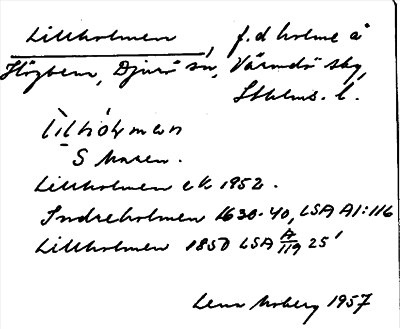 Lillholmen, f.d holme å
Högbena, Djurö sn, Värmdö skg,
Sthlms. l.
Lillhòlmen
S Maren.
Lillholmen ek 1952.
Indreholmen 1630-40, LSA A1:116
Lillholmen 1850 LSA A/119 25'
Lena Moberg 1957